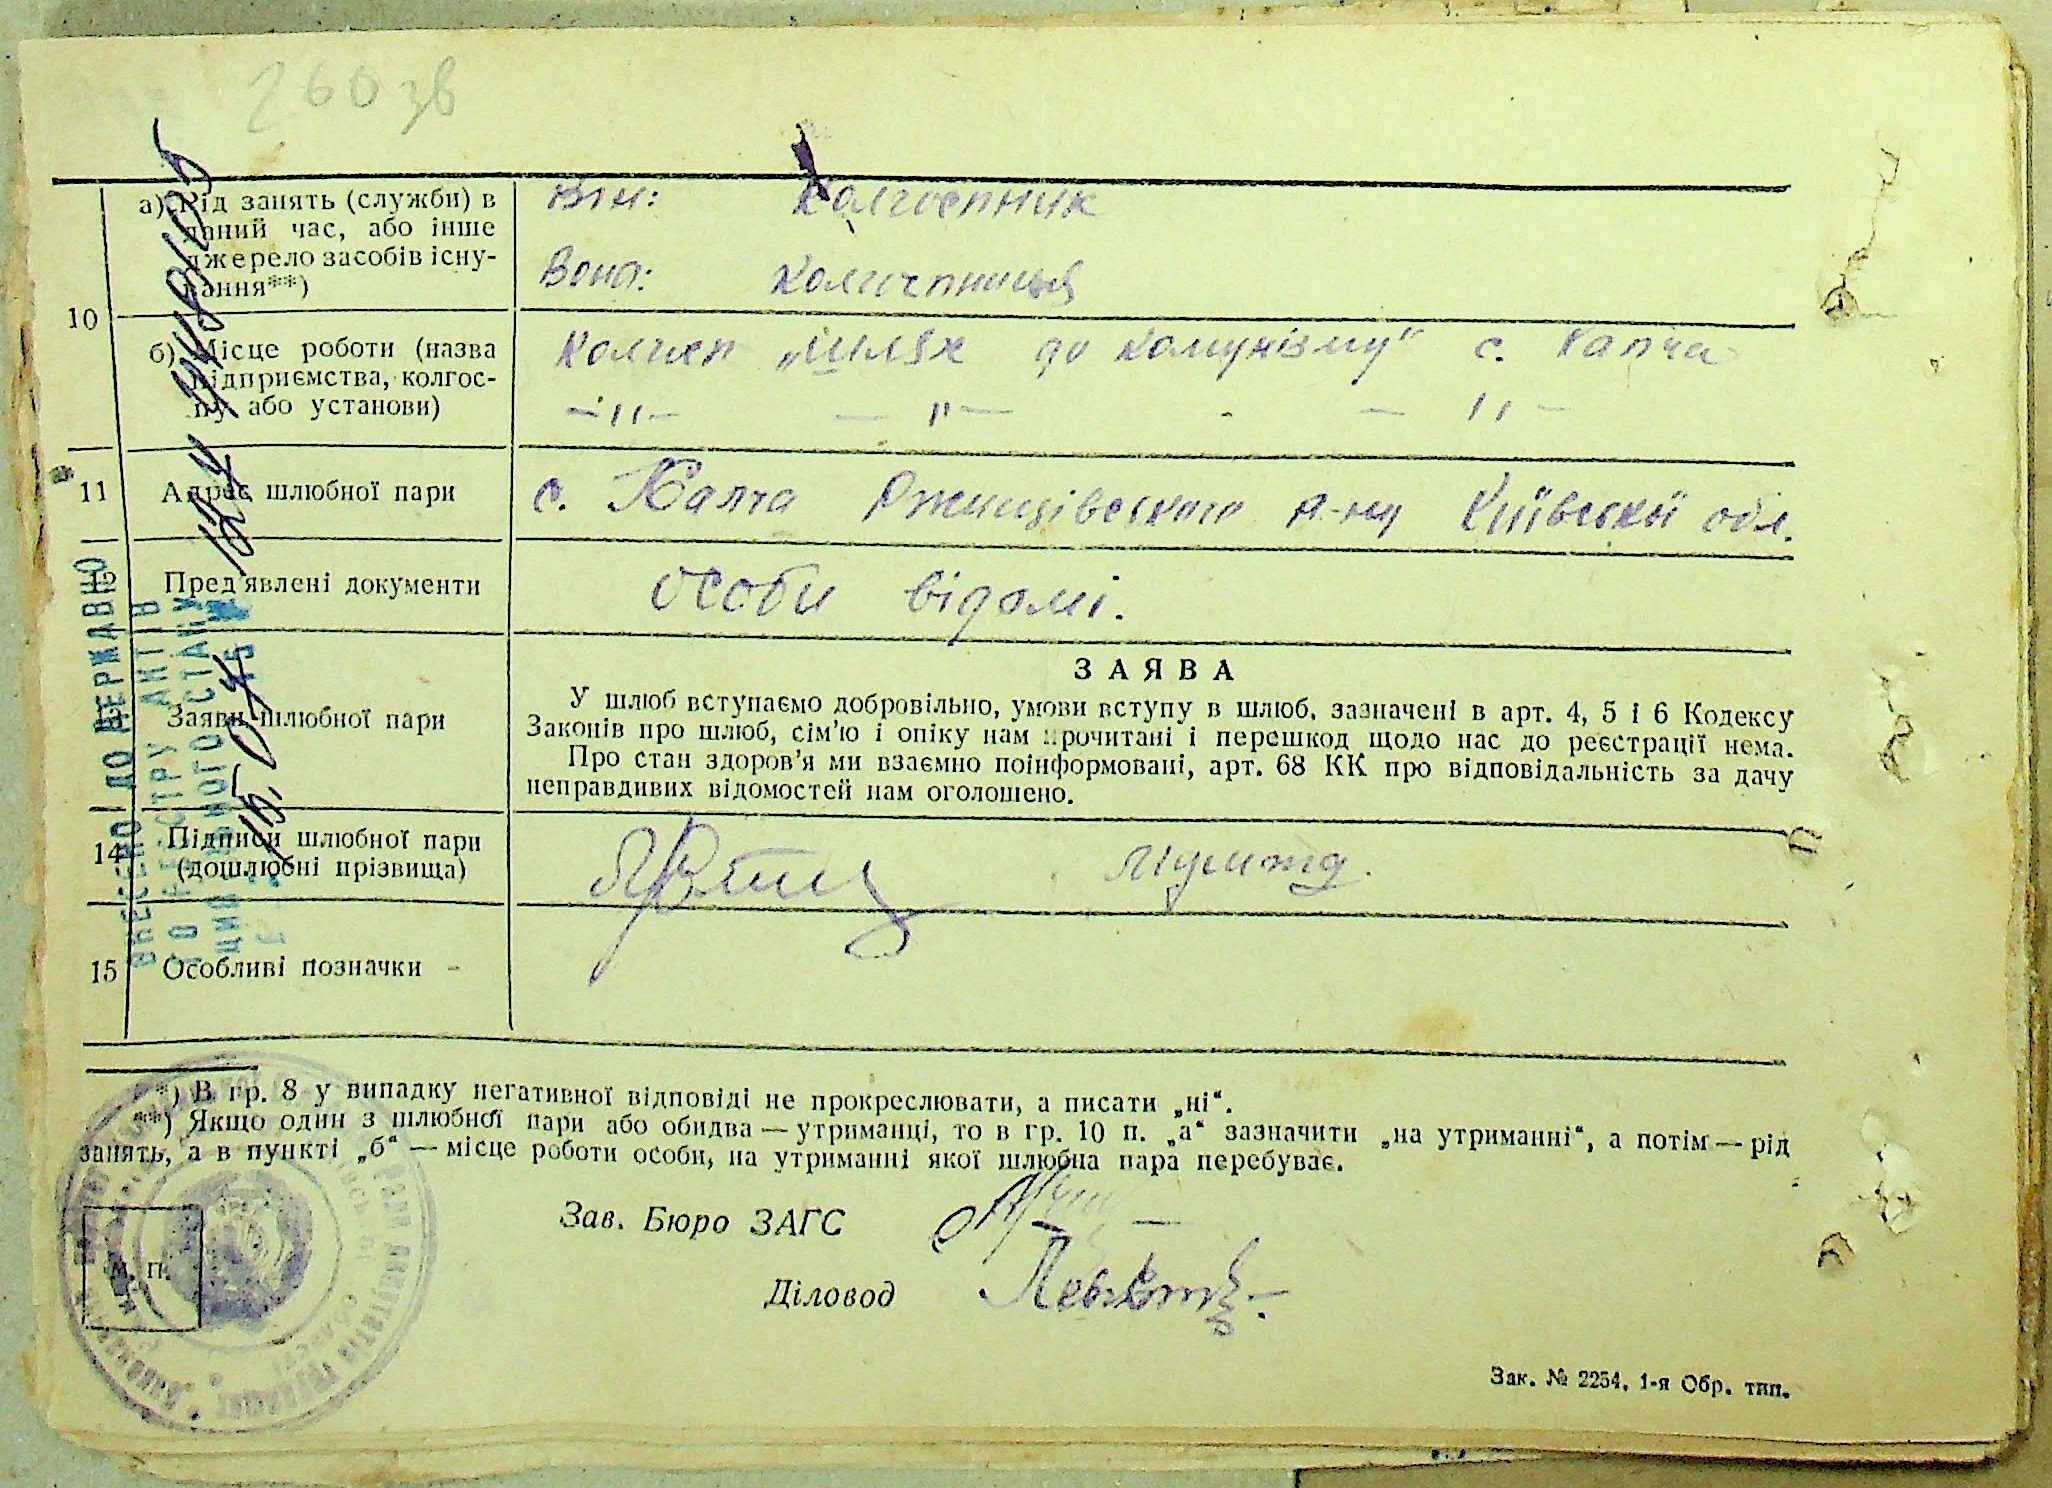 260 зв
а) Рід занять (служби) в
даний час, або інше
джерело засобів існу-
вання**)
Він: Колгоспник
Вона: Колгоспниця
10
б) Місце роботи (назва
підприємства, колгос-
пу або установи)
Колгосп „Шлях до Комунізму“ с. Капча
—〃— —〃— —〃—
11 Адрес шлюбної пари с. Калча Ржищівського р-ну Київської обл.
12 Пред'явлені документи особи відомі.
ЗАЯВА
13 Заяви шлюбної пари
У шлюб вступаємо добровільно, умови вступу в шлюб, зазначені в арт. 4, 5 і 6 Кодексу
Законів про шлюб, сім'ю і опіку нам прочитані і перешкод щодо нас до реєстрації нема.
Про стан здоров'я ми взаємно поінформовані, арт. 68 КК про відповідальність за дачу
неправдивих відомостей нам оголошено.
14 Підписи шлюбної пари
(дошлюбні прізвища)
15 Особливі позначки -
ВНЕСЕНО ДО ДЕРЖАВНО
ГО РЕЄСТРУ АКТІВ
ЦИВІЛЬНОГО СТАНУ
*) В гр. 8 у випадку негативної відповіді не прокреслювати, а писати „ні“.
**) Якщо один з шлюбної пари або обидва — утриманці, то в гр. 10 п. „а“ зазначити „на утриманні“, а потім — рід
занять, а в пункті „б“ — місце роботи особи, на утриманні якої шлюбна пара перебуває.
Зав. Бюро ЗАГС
М. П.
Діловод
Зак. № 2254, 1-я Обр. тип.